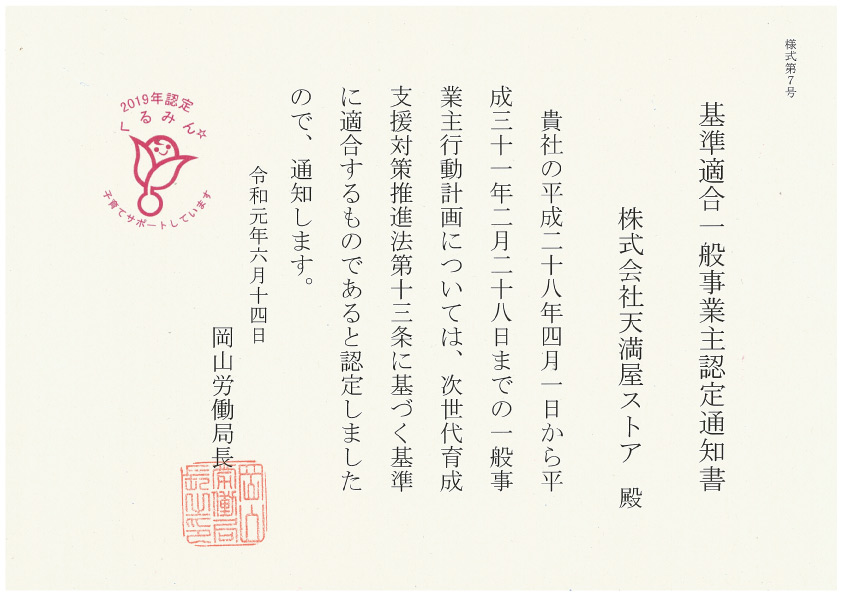 様式第7号
基準適合一般事業主認定通知書
株式会社天満屋ストア 殿
貴社の平成二十八年四月一日から平
成三十一年二月二十八日までの一般事
業主行動計画については、次世代育成
支援対策推進法第十三条に基づく基準
に適合するものであると認定しました
ので、通知します。
令和元年六月十四日
岡山労働局長
岡山
労働局
長之印
2019年認定
くるみん☆
子育てサポートしています